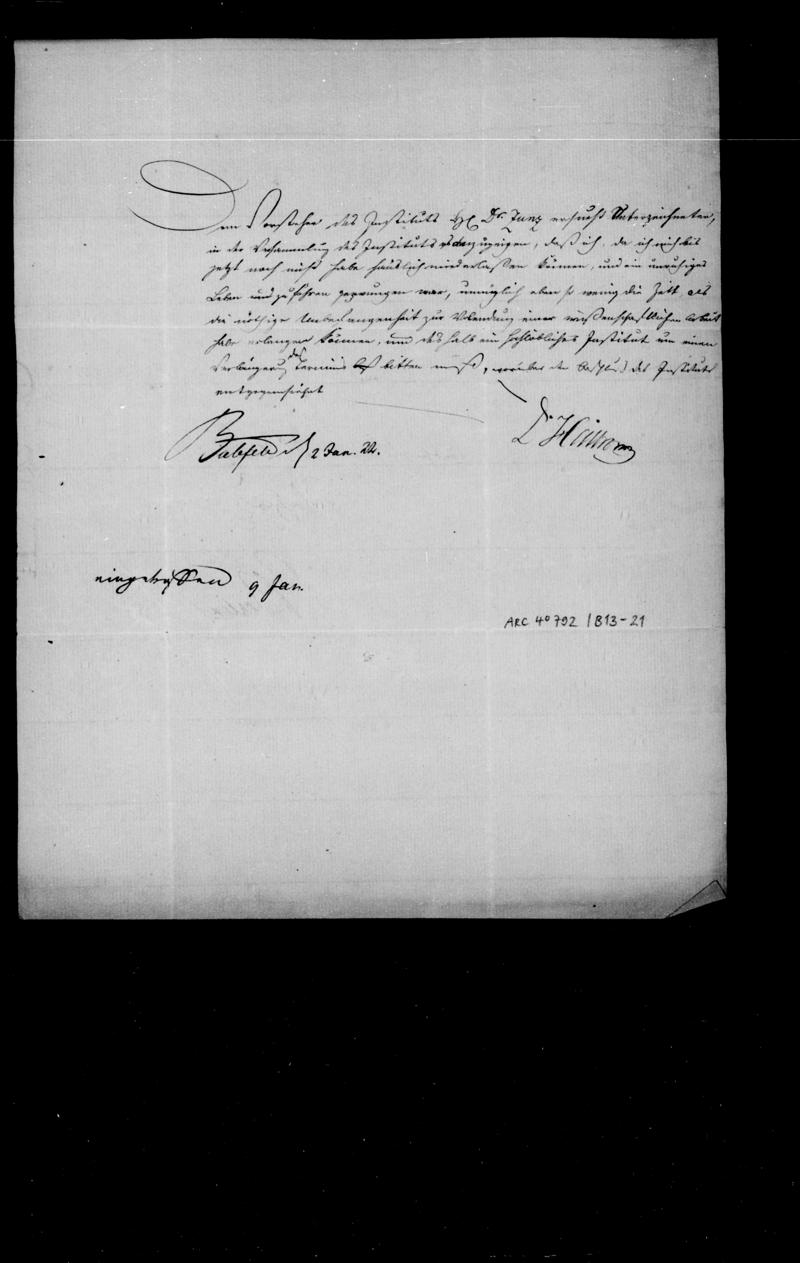 Dem Vorsteher des Instituts H. Dr. Zunz ersucht Unterzeichneter,
in der Versammlung des Instituts anzuzeigen, daß ich, da ich mich bis
jetzt noch nicht habe häuslich niederlassen können, und ein unruhiges
Leben zu führen gezwungen war, unmöglich eben so wenig die Zeit als
die nöthige Unbefangenheit zur Vollendung einer wissenschaftlichen Arbeit
habe erlangen können, und deshalb ein hochlöbliches Institut um einen
Verlängerung des Termins bitten muß, worüber den Beschluß des Instituts
entgegensieht
Bielefeld d 2 Jan. 22.
Dr
eingetroffen 9 Jan.
ARC 4° 792 / B13-21